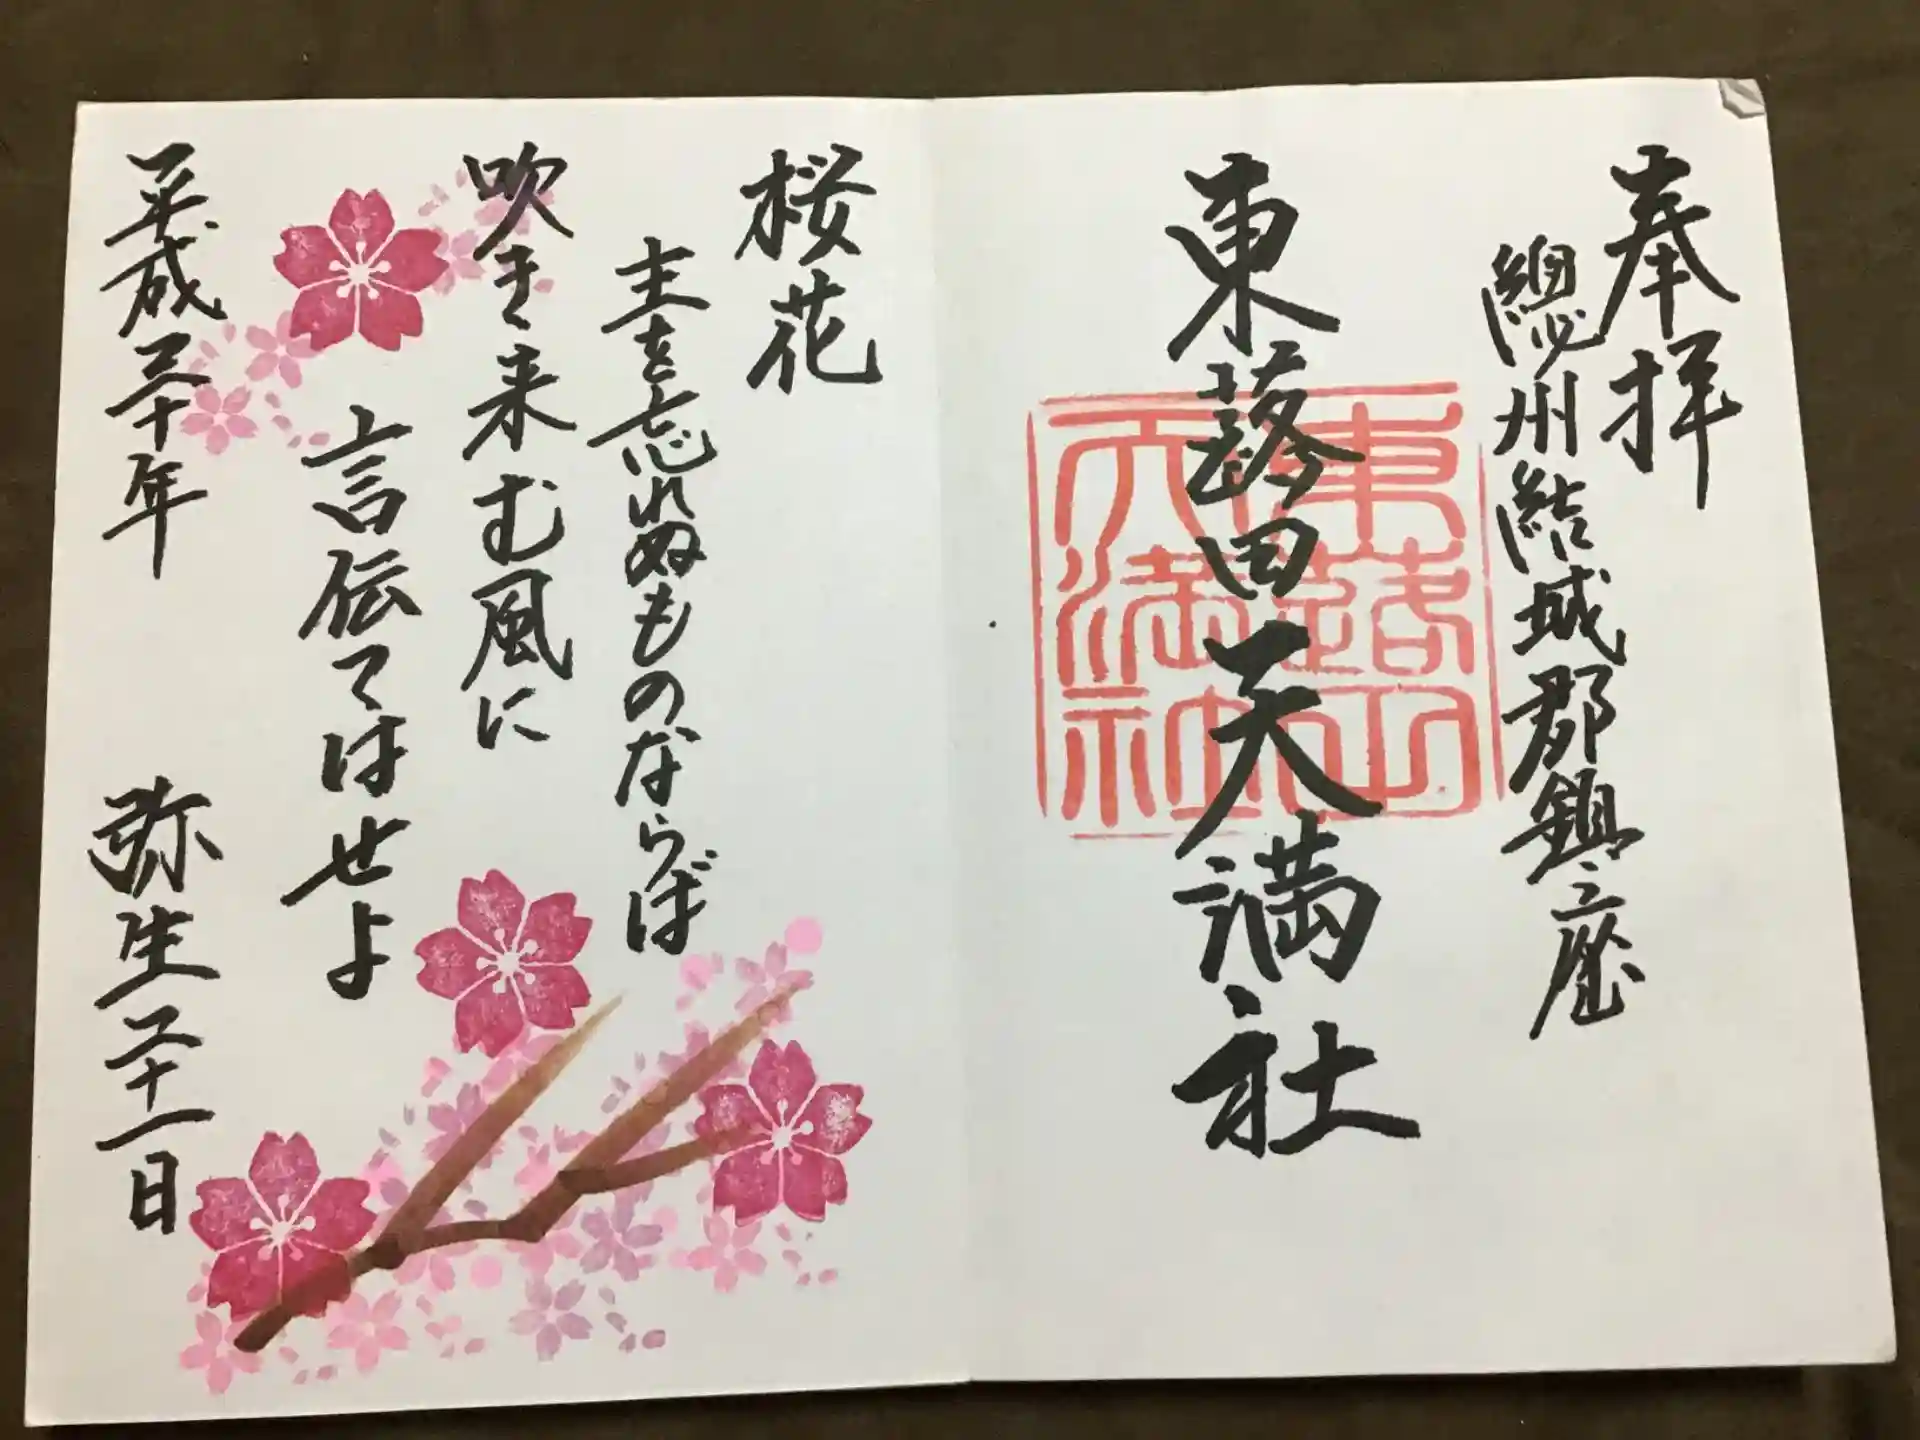 奉拝
總州結城郡鎮座
東蕗田天満社
東蕗田天満社
桜花
主を忘れぬものならば
吹き来む風に
言伝てはせよ
平成三十年 弥生二十一日